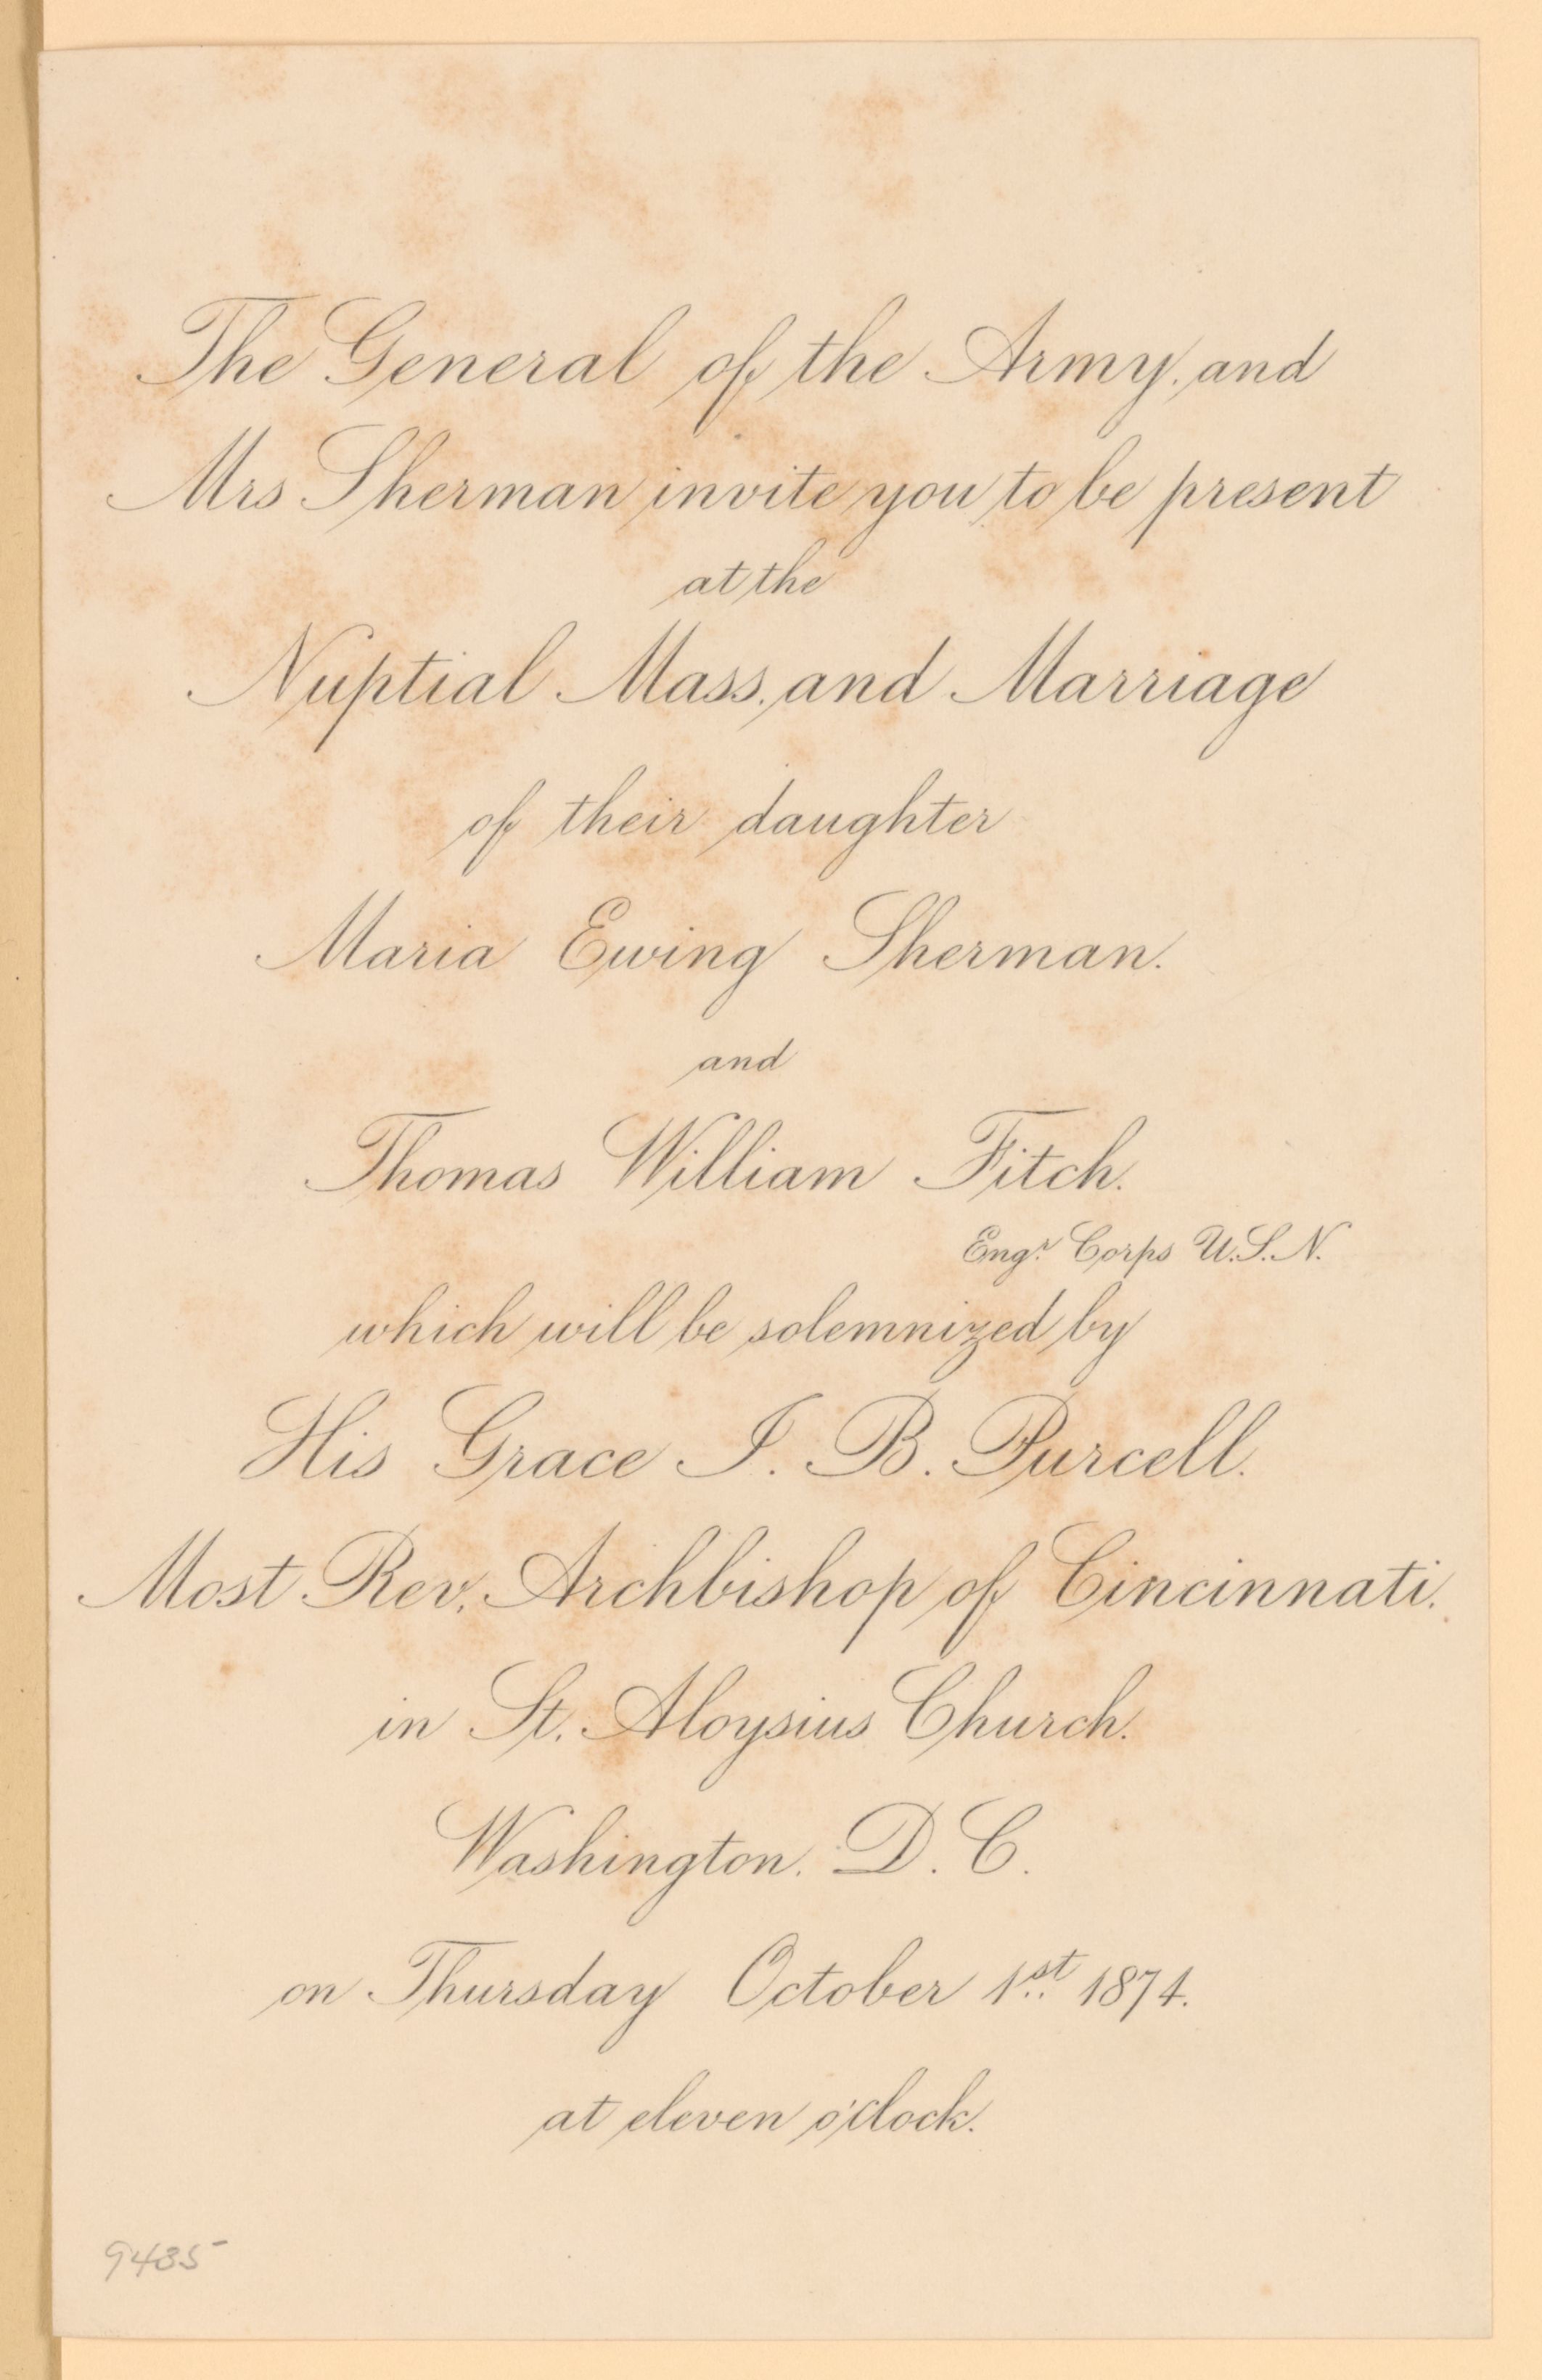 The General of the Army, and
Mrs Sherman invite you to be present
at the
Nuptial Mass, and Marriage
of their daughter
Maria Ewing Sherman.
and
Thomas William Fitch.
Engr. Corps U.S.N.
which will be solemnized by
His Grace J. B. Purcell.
Most Rev. Archbishop of Cincinnati.
in St. Aloysius Church.
Washington. D. C.
on Thursday October 1st 1874.
at eleven o'clock.
9485